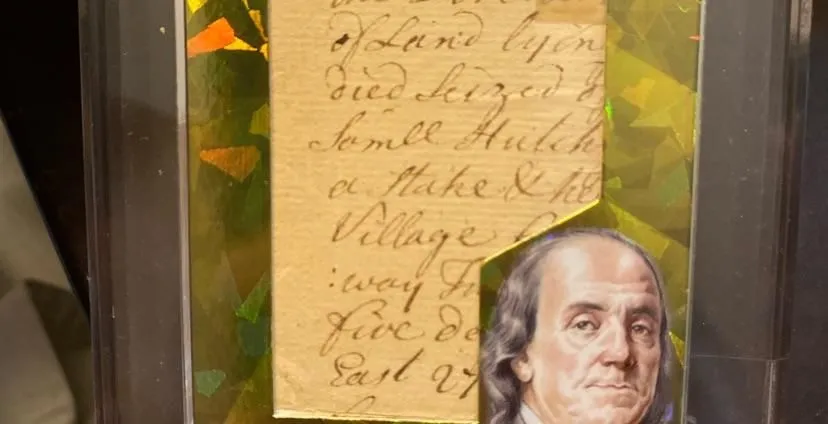 of Land lyin
died seized of
Samll Hutch
a Stake & he
Village
:way Fr
five de
East 27